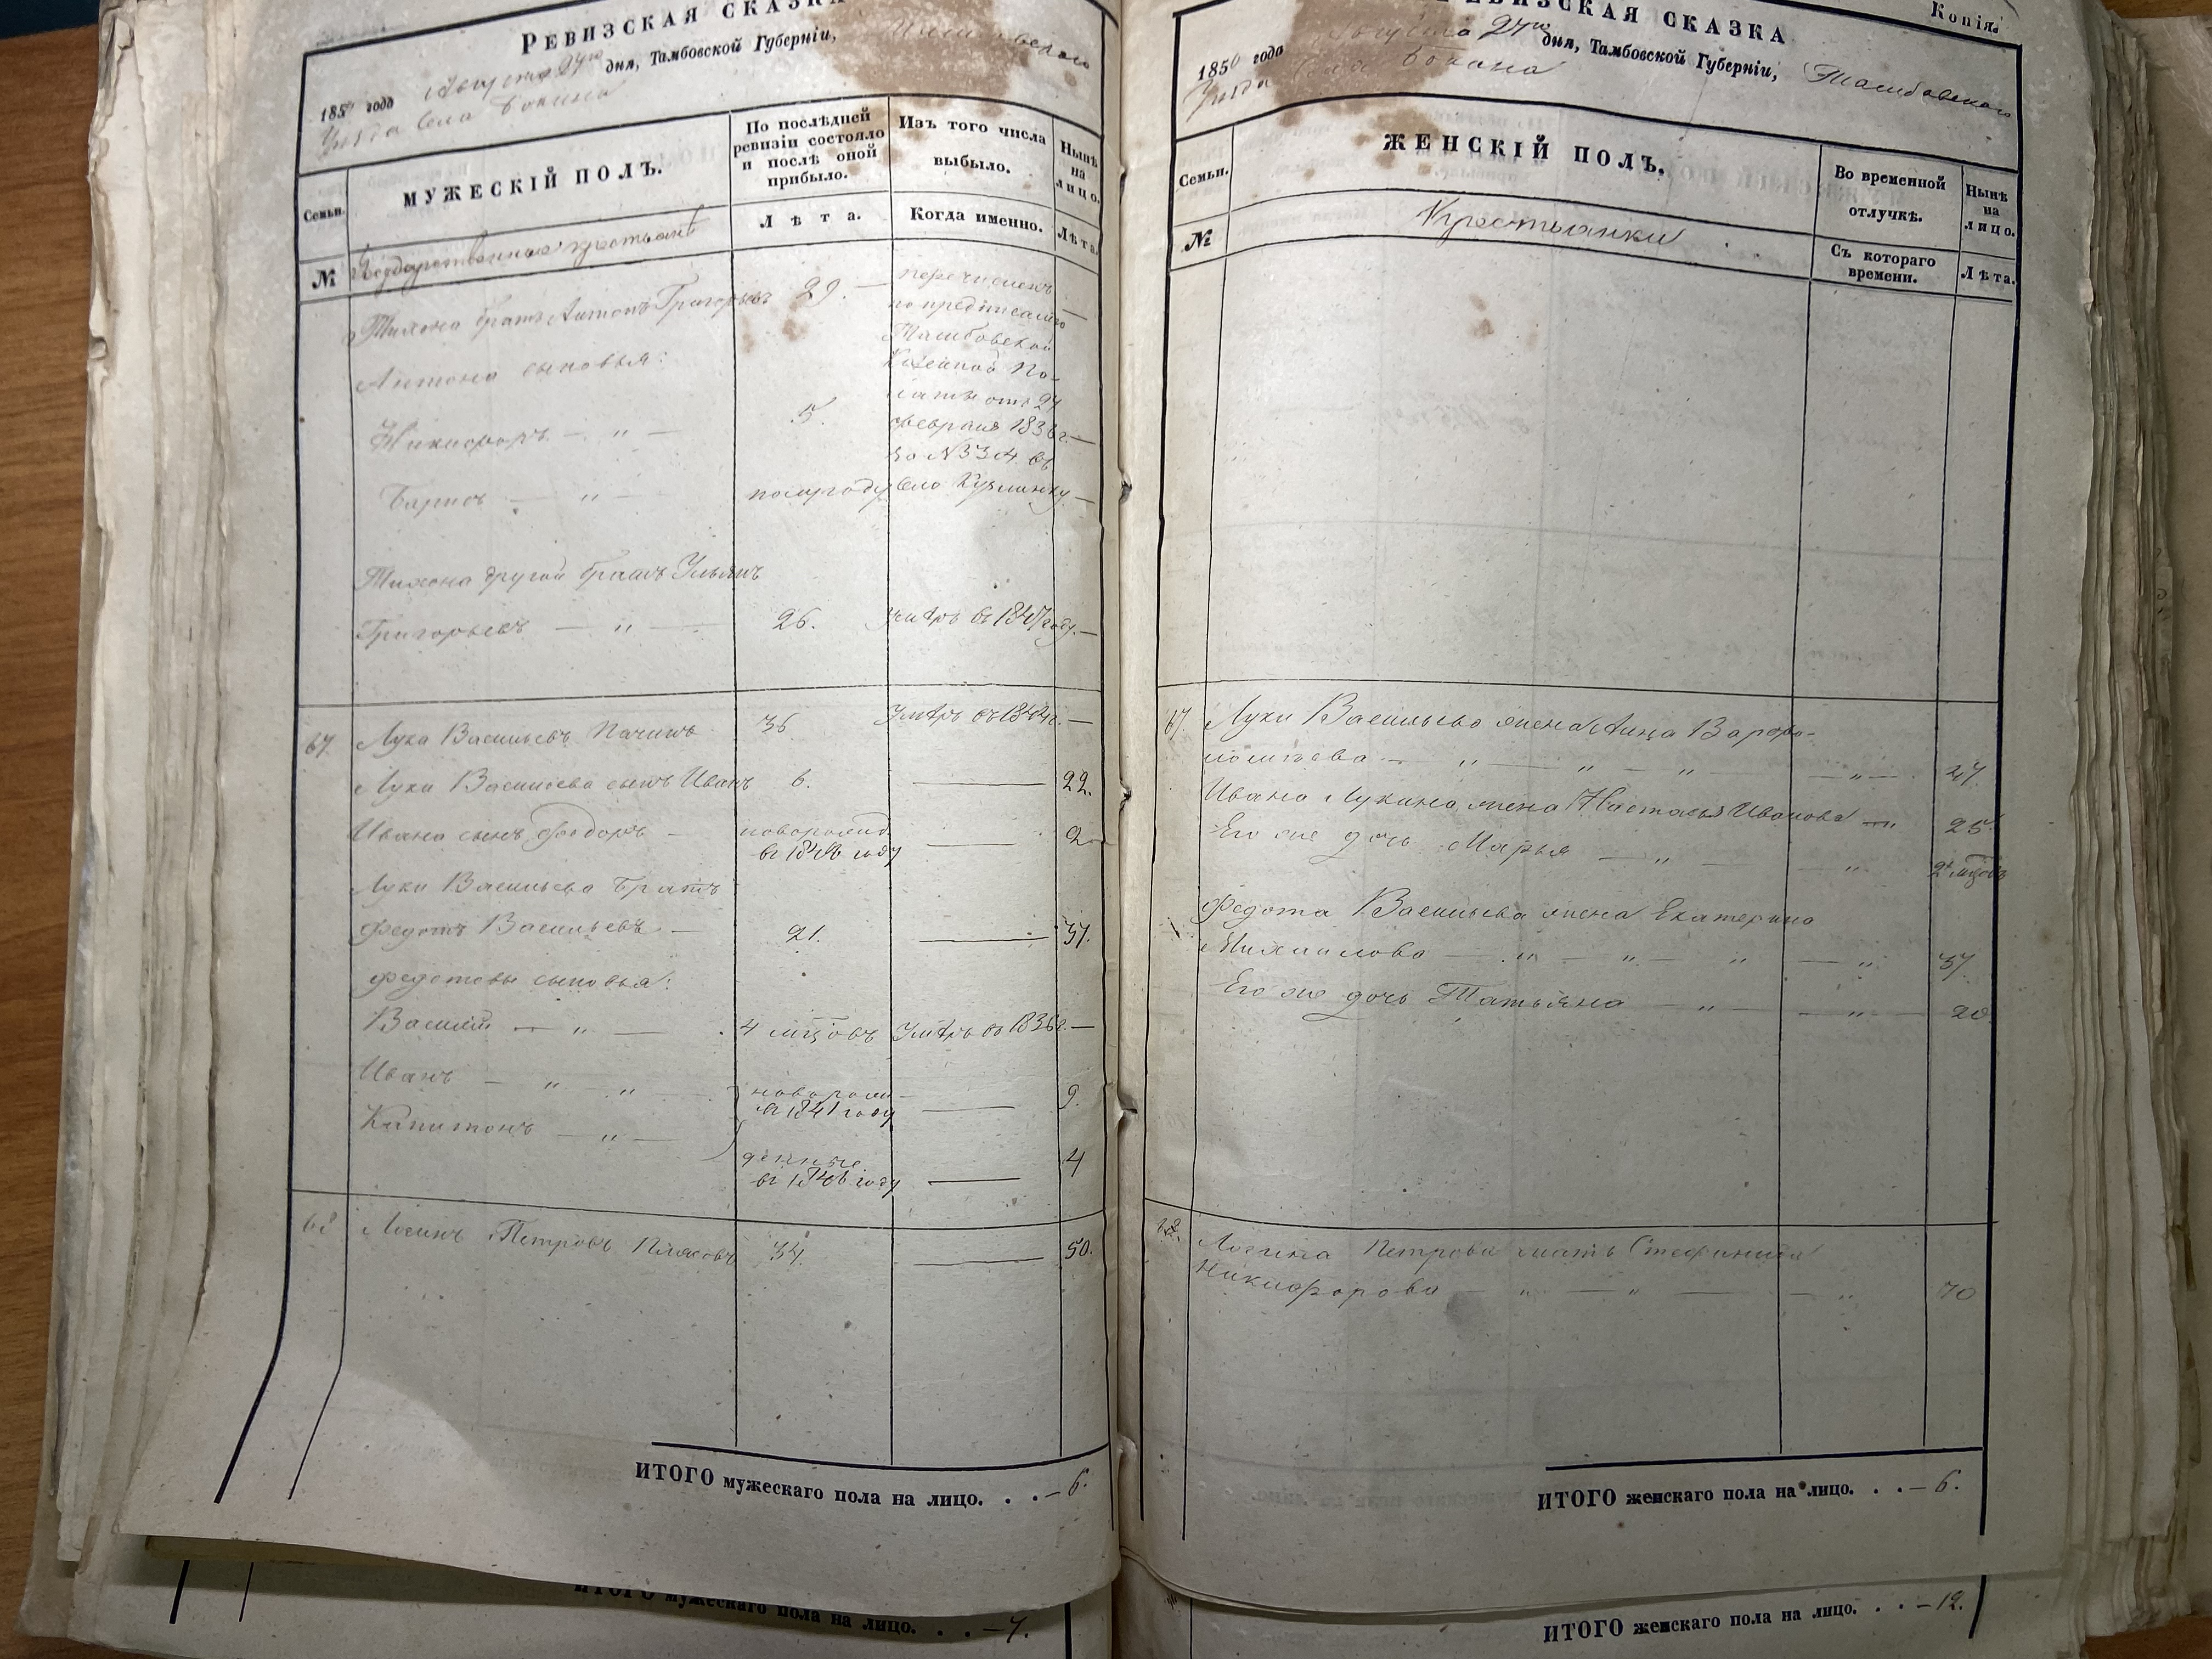 РЕВИЗСКАЯ СКАЗКА
1850 года Августа 24го дня, Тамбовской Губерніи, Тамбовскаго
Уезда Села Бокина
Семьи.
МУЖЕСКІЙ ПОЛЪ.
По послѣдней ревизіи состояло и послѣ оной прибыло.
Изъ того числа выбыло.
Нынѣ на лицо.
№
Государственные крестьяне
Лѣта.
Когда именно.
Лѣта.
Тихона братъ Антонъ Григорьевъ 29. — перечисленъ —
по предписанію
Антона сыновья: Тамбовской
Казенной Па-
латы отъ 24
Никифоръ — " — 5. февраля 1836 г. —
за №334. въ
Барисъ — " — полугоду село Кузминку —
Тихона другой братъ Ульянъ
Григорьевъ — " — 26. Умѣръ въ 1847 году. —
67. Лука Васильевъ 36 Умѣръ въ 1844 г. —
Луки Васильева сынъ Иванъ 6. — 22.
Ивана сынъ Федоръ — новорожд. въ 1848 году — 2
Луки Васильева братъ
Федотъ Васильевъ — 21. — 37.
Федотовы сыновья:
Василій — " — 4 мцовъ Умѣръ въ 1836 г. —
Иванъ — " — " — новорож- въ 1841 году — 9.
Капитонъ — " — денные въ 1846 году — 4
68 Логинъ Петровъ 34. — 50.
ИТОГО мужескаго пола на лицо. . . — 6.
ИТОГО мужескаго пола на лицо. . . — 7.
Копія.
РЕВИЗСКАЯ СКАЗКА
1850 года Августа 24го дня, Тамбовской Губерніи, Тамбовскаго
Уезда Села Бокина
Семьи.
ЖЕНСКІЙ ПОЛЪ.
Во временной отлучкѣ.
Нынѣ на лицо.
№
Крестьянки
Съ котораго времени.
Лѣта.
67. Луки Васильева жена Анна Варфо-
ломѣева — " — " — " — " — 47
Ивана Лукина жена Настасья Иванова — " 25
Его же дочь Марья — " — " 2 мцовъ
Федота Васильева жена Екатерина
Михайлова — " — " — " — " 37.
Его же дочь Татьяна — " — " — 20.
68. Логина Петрова мать Стефанида
Никифорова — " — " — " 70
ИТОГО женскаго пола на лицо. . . — 6.
ИТОГО женскаго пола на лицо. . . — 12.